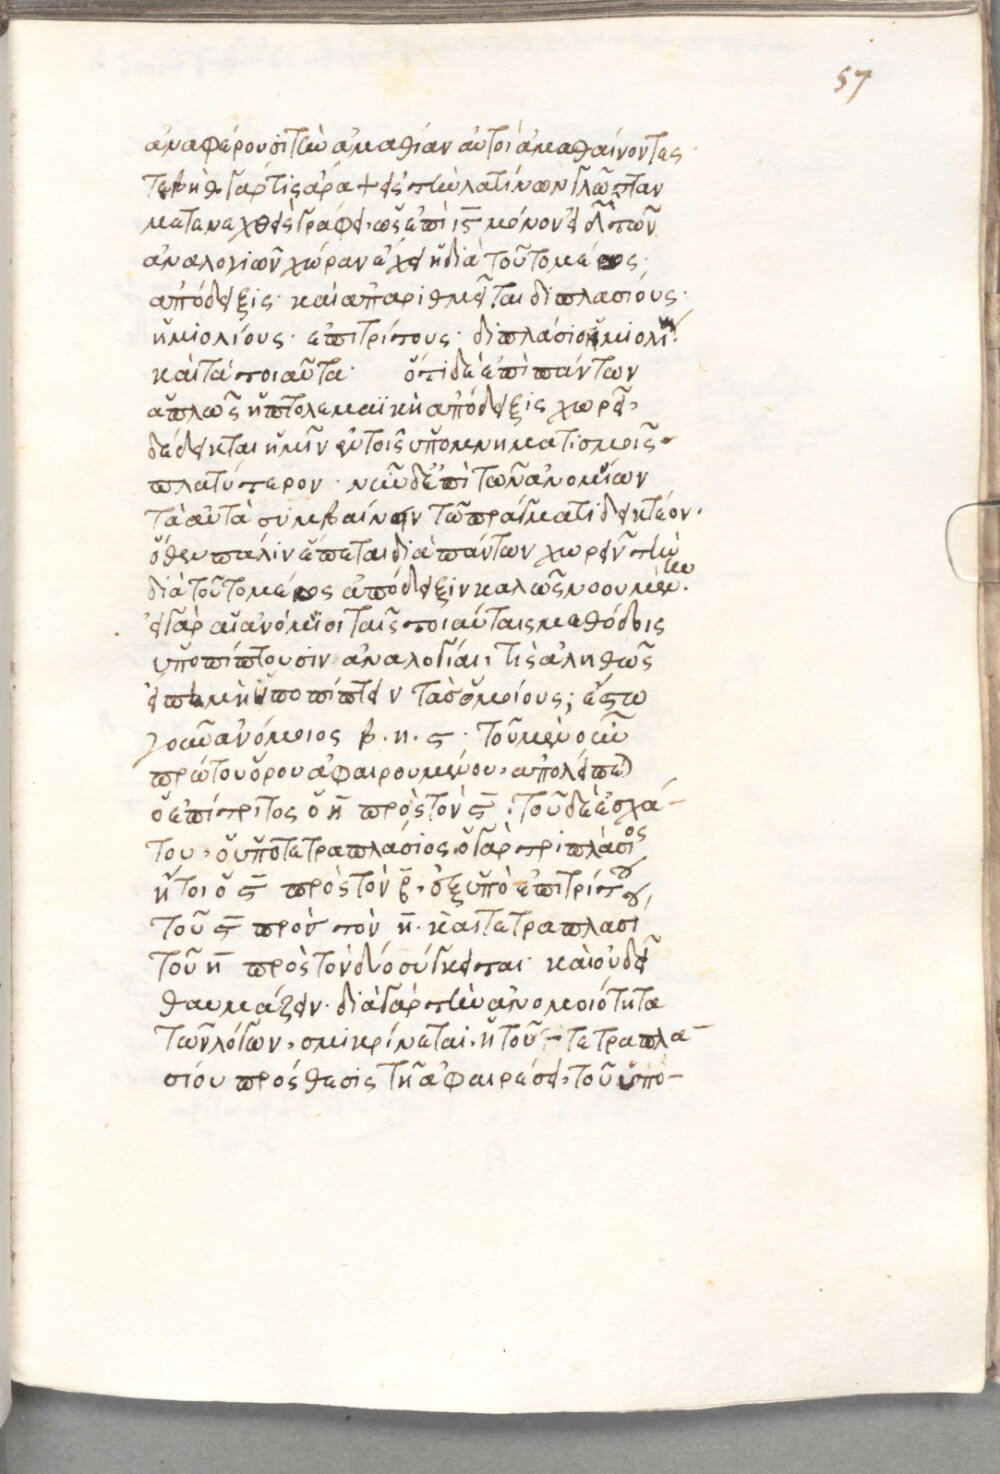 57
ἀναφέρουσι τὴν ἀμαθίαν αὐτοὶ ἀμαθαίνοντες
γάρ τις ἄρα εἰς τὴν λατίνων γλῶτταν
μετενεχθεὶς γράφει, ὡς ἐπὶ μόνον
ἀναλογιῶν χώραν ἔχει ἡ διὰ τοῦ τομέως
ἀπόδειξις· καὶ ἀπαριθμεῖται διπλασίους·
ἡμιολίους· ἐπιτρίτους·
καὶ τὰ τοιαῦτα· ὅτι δὲ ἐπὶ πάντων
ἁπλῶς ἡ πτολεμαϊκὴ ἀπόδειξις χωρεῖ,
δέδεικται ἡμῖν ἐν τοῖς ὑπομνηματισμοῖς
πλατύτερον· νῦν δ' ἐπὶ τῶν ἀνομοίων
τὰ αὐτὰ συμβαίνειν τῶ πράγματι δεικτέον·
ὅθεν πάλιν ἕπεται διὰ πάντων χωρεῖν τὴν
διὰ τοῦ τομέως ἀπόδειξιν καλῶς νοουμένην·
εἰ γὰρ αἱ ἀνόμοιοι ταῖς τοιαύταις μεθόδοις
ὑποπίπτουσιν ἀναλογίαι, τίς ἀληθῶς
εἴποι μὴ ὑποπίπτειν τὰς ὁμοίους; ἔστω
γοῦν ἀνόμοιος β· η· ς· τοῦ μὲν οὖν
πρώτου ὅρου ἀφαιρουμένου, ἀπολείπεται
ὁ ἐπίτριτος ὁ η̄ πρὸς τὸν ς̄· τοῦ δὲ ἐσχά-
του, ὁ ὑποτετραπλάσιος· ὁ γὰρ τριπλάσιος
ἤτοι ὁ ς̄ πρὸς τὸν β̄, ἐξ ὑπὸ ἐπιτρίτου
τοῦ ς̄ πρὸς τὸν η̄· καὶ τετραπλασι
τοῦ η̄ πρὸς τὸν δύο σύγκειται· καὶ οὐ δεῖ
θαυμάζειν· διὰ γὰρ τὴν ἀνομοιότητα
τῶν λόγων, σμικρίνεται ἡ τοῦ τετραπλα-
σίου πρόσθεσις τῆ ἀφαιρέσει τοῦ ὑπο-